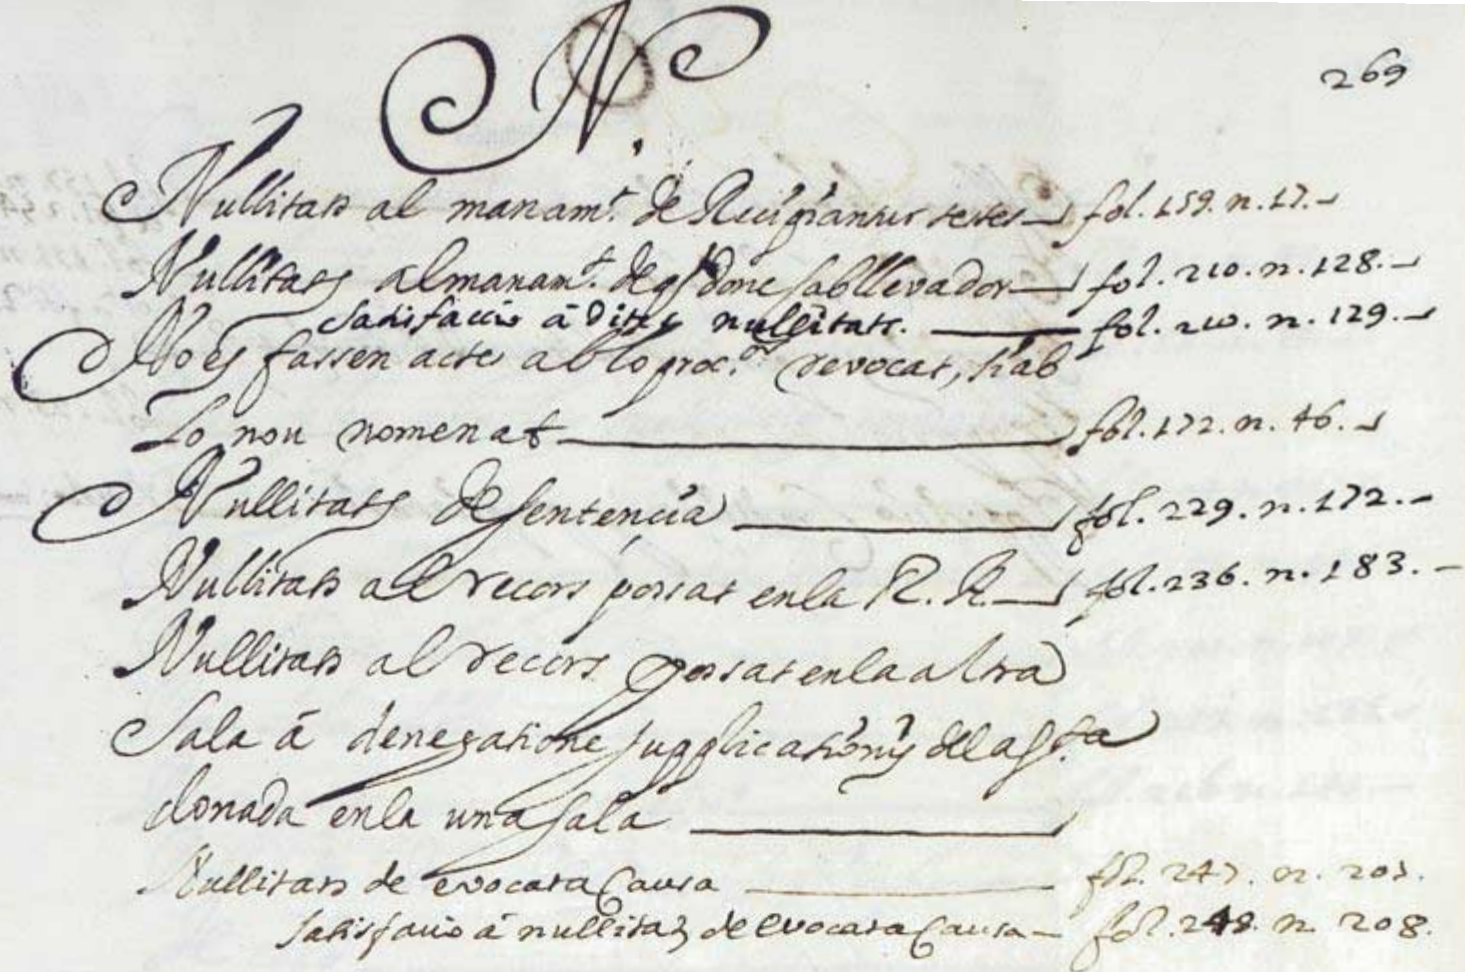 N.
269
Nullitats al manamt. de Recipiantur testes fol. 159. n. 17.
Nullitats al manamt. de qs done sabllevador fol. 210. n. 128.
Satisfacció á Dites nullitats. fol. 210. n. 129.
No es fassen acte ab lo procor. revocat, si ab
Lo nou nomenat fol. 172. n. 46.
Nullitats de sentencia fol. 229. n. 172.
Nullitats al recors posat en la R. R. fol. 236. n. 183.
Nullitats al recors posat en la altra
Sala á denegatione supplicationis de la sta.
donada en la una sala
Nullitats de evocata Causa fol. 247. n. 205.
Satisfacio á nullitats de evocata Causa fol. 248. n. 208.